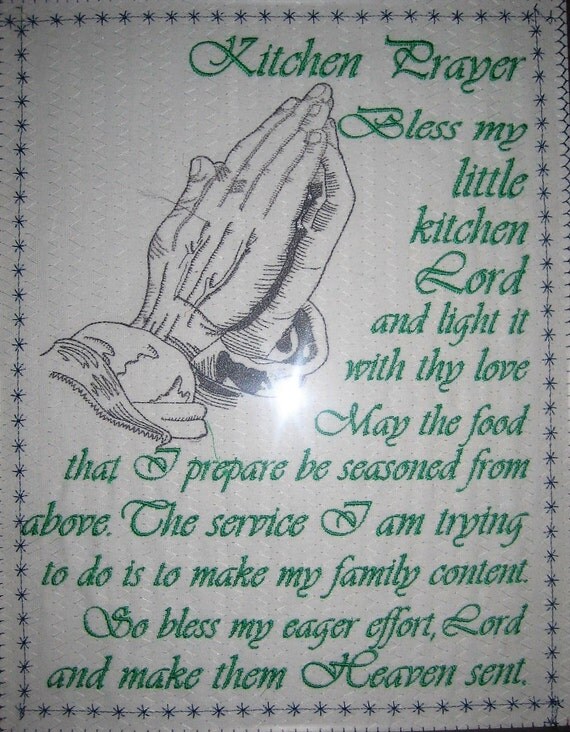 Kitchen Prayer
Bless my
little
kitchen
Lord
and light it
with thy love
May the food
that I prepare be seasoned from
above. The service I am trying
to do is to make my family content.
So bless my eager effort, Lord
and make them Heaven sent.